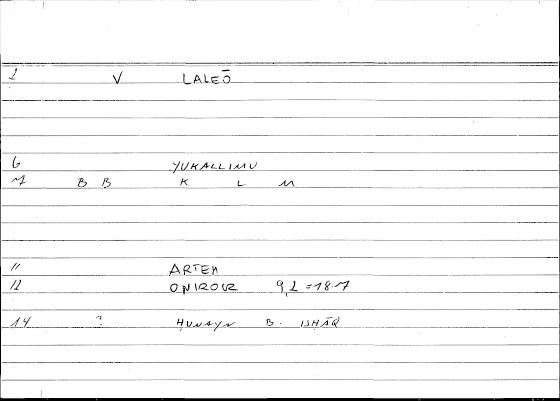 2 V LALEŌ
6 YUKALLIMU
7 B B K L M
11 ARTEM
12 ONIROCR 9,2 = 18.7
14 ? ḤUNAYN B. ISḤĀQ